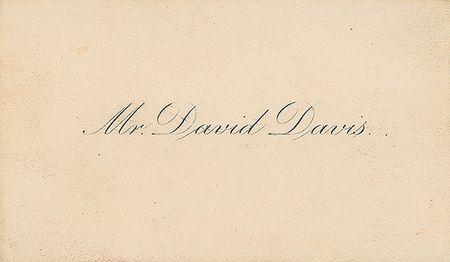 Mr. David Davis.